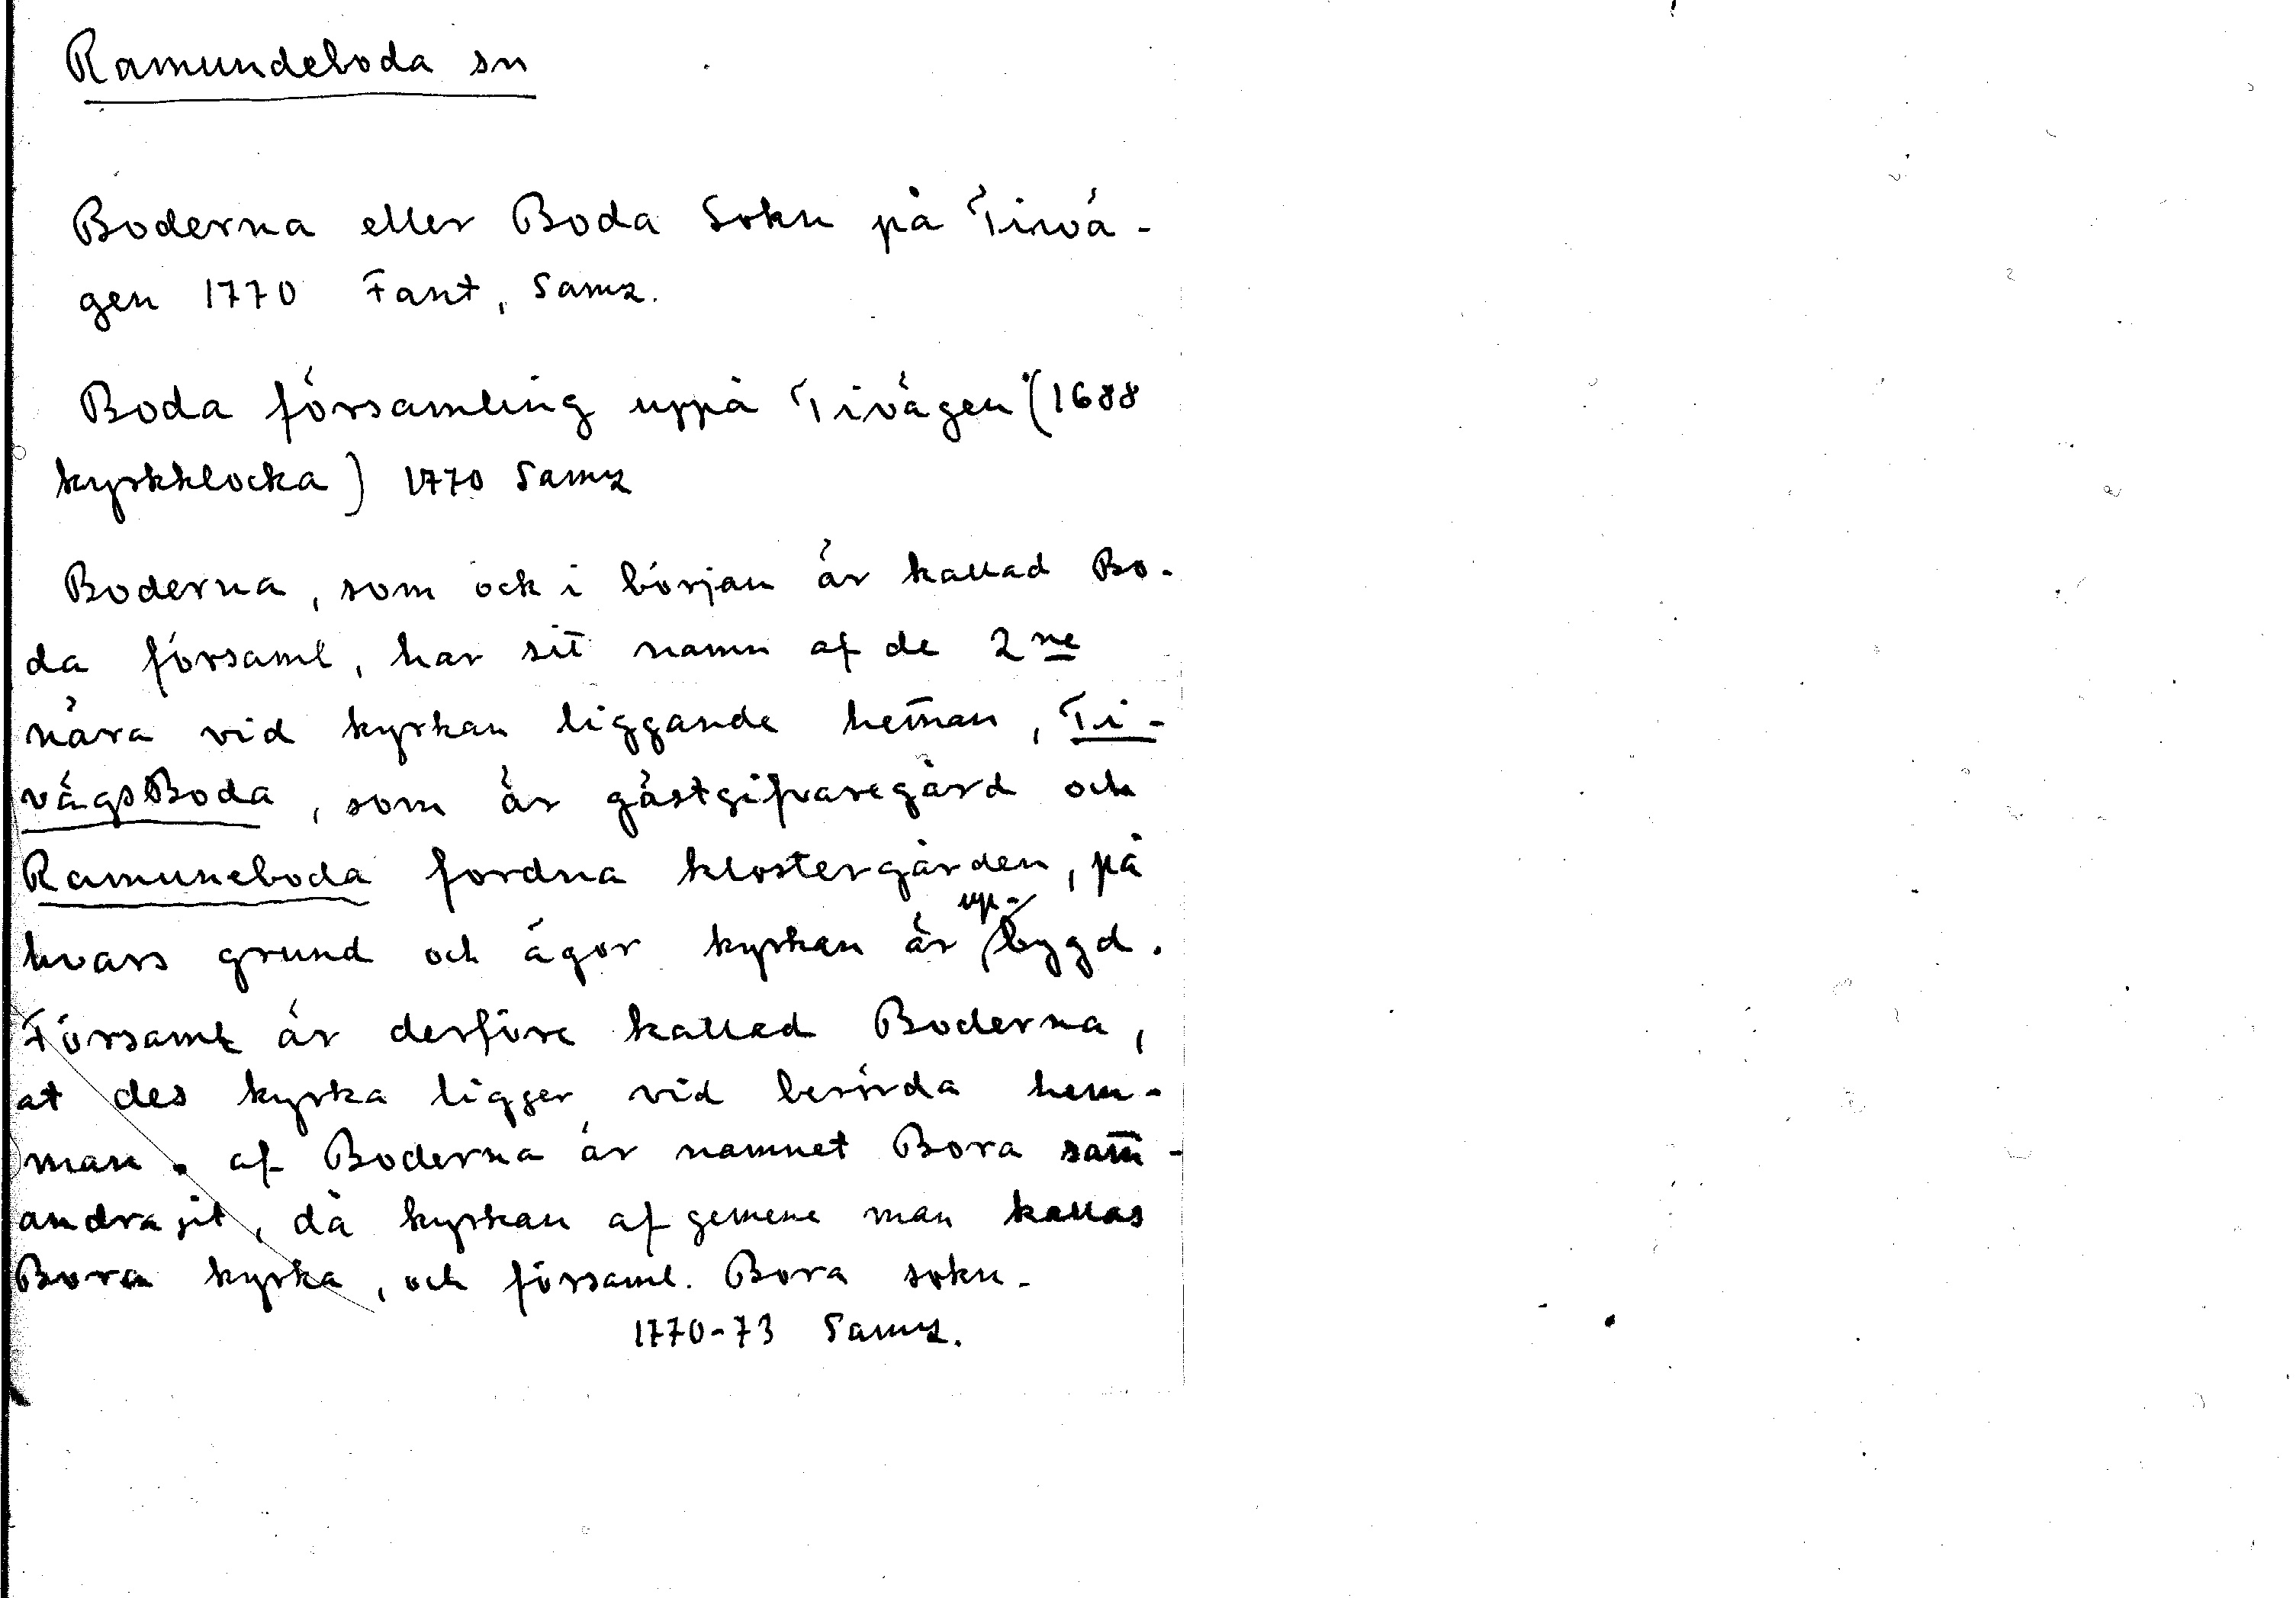 Ramundeboda sn
Boderna eller Boda Sokn på Tivä-
gen 1770 Fant, Saml.
Boda församling uppå Tivägen (1688
kyrkklocka) 1770 Saml
Boderna, som ock i början är kallad Bo-
da församl, har sit namn af de 2ne
nära vid kyrkan liggande hem̄an, Ti-
vägsBoda, som är gästgifvaregård och
Ramuneboda fordna klostergården, på
hvars grund och ägor kyrkan är up-bygd.
Församl är derföre kallad Boderna,
at des kyrka ligger vid berörda hem-
man. af Boderna är namnet Bora sam̄-
andragit, då kyrkan af gemene man kallas
Bora kyrka, och församl. Bora sokn.
1770-73 Saml.